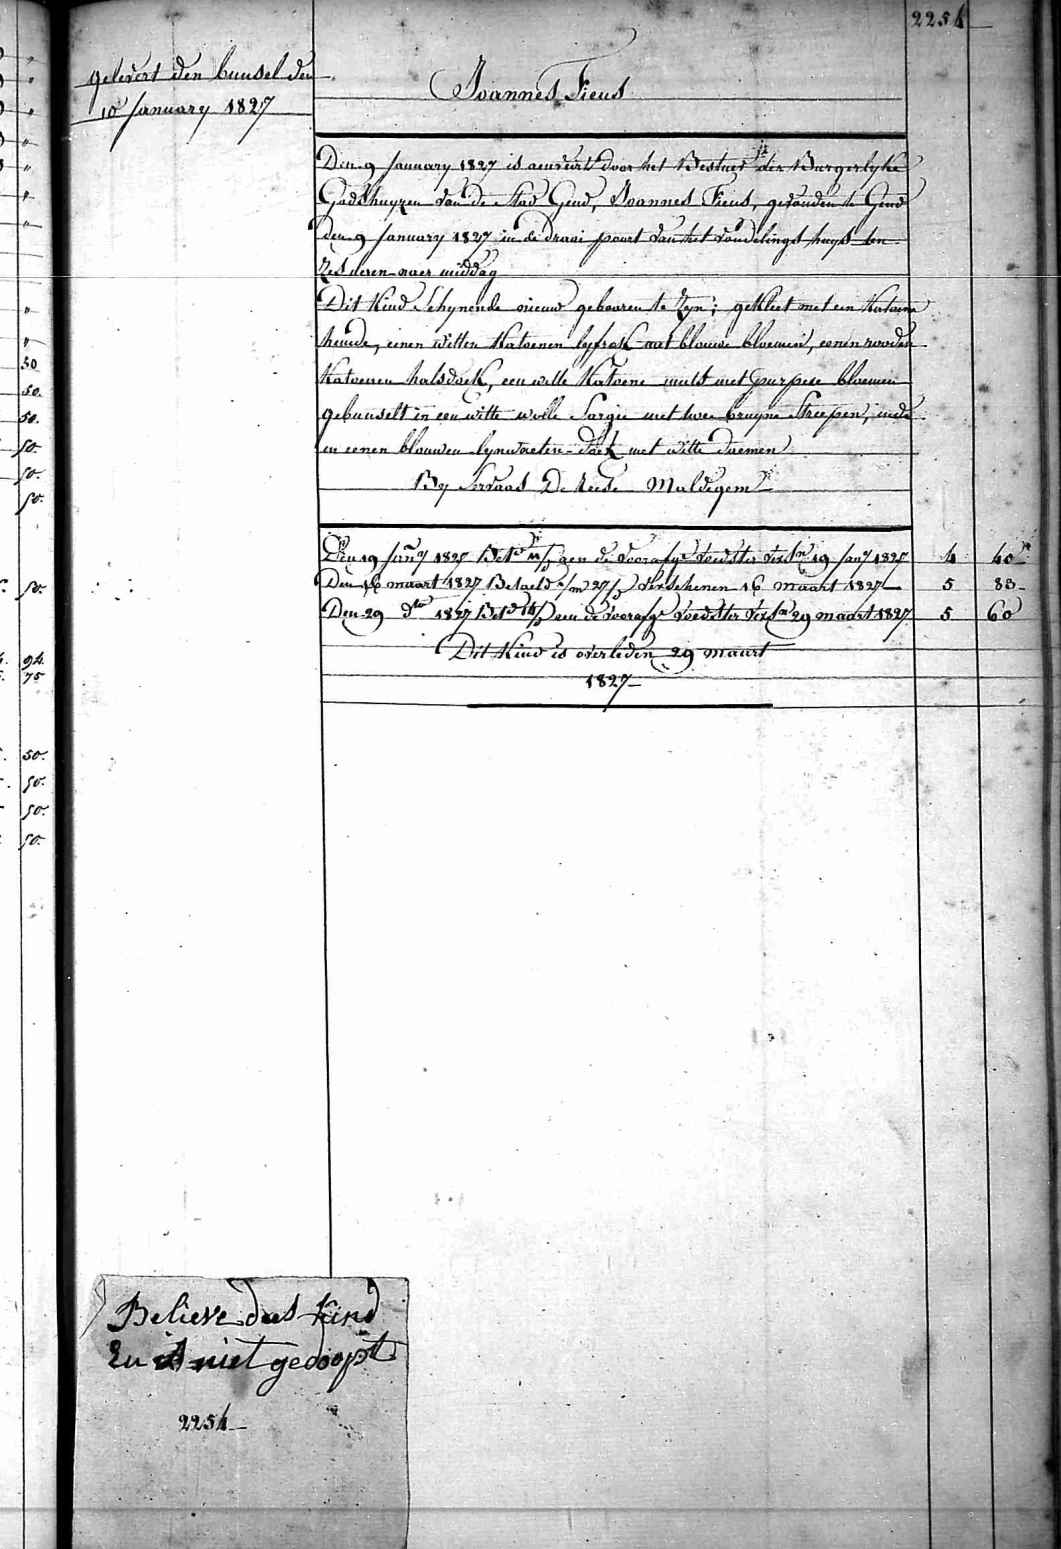 2254
gelevert den bunsel den
10 January 1827
Joannes Fieus
Den 9 January 1827 is aenveirt door het Bestier der Burgerlyke
Godshuyzen van de Stad Gend, Joannes Fieus, gevonden te Gend
den 9 January 1827 in de draai poort van het vondelings huys ten
zes uren naer middag
Dit Kind Schynende nieuw gebooren te Zyn; gekleet met een Katoene
hemde, eenen witten Katoenen lyfrok met blauwe bloemen, eenen rooden
Katoenen halsdoek, een witte Katoene muts met purpere bloemen
gebunselt in een witte wolle Sargie met twee bruyne Streepen, ende
in eenen blauwen lynwaeten doek met witte
By Servaas De Keese Maldegem
Den 19 Jany 1827 Bet aen de voorsz voedster 19 Jany 1827 4 40
Den 16 maart 1827 Betaeld 27/ Verschenen 16 maart 1827 5 83
Den 29 dto 1827 Betd aen de voorsz voedster 29 maart 1827 5 60
Dit Kind is overleden 29 maart
1827
Believe das kind
En is niet gedoopt
2254
50
50.
50.
50.
50.
50.
50.
94
75
50.
50.
50.
50.